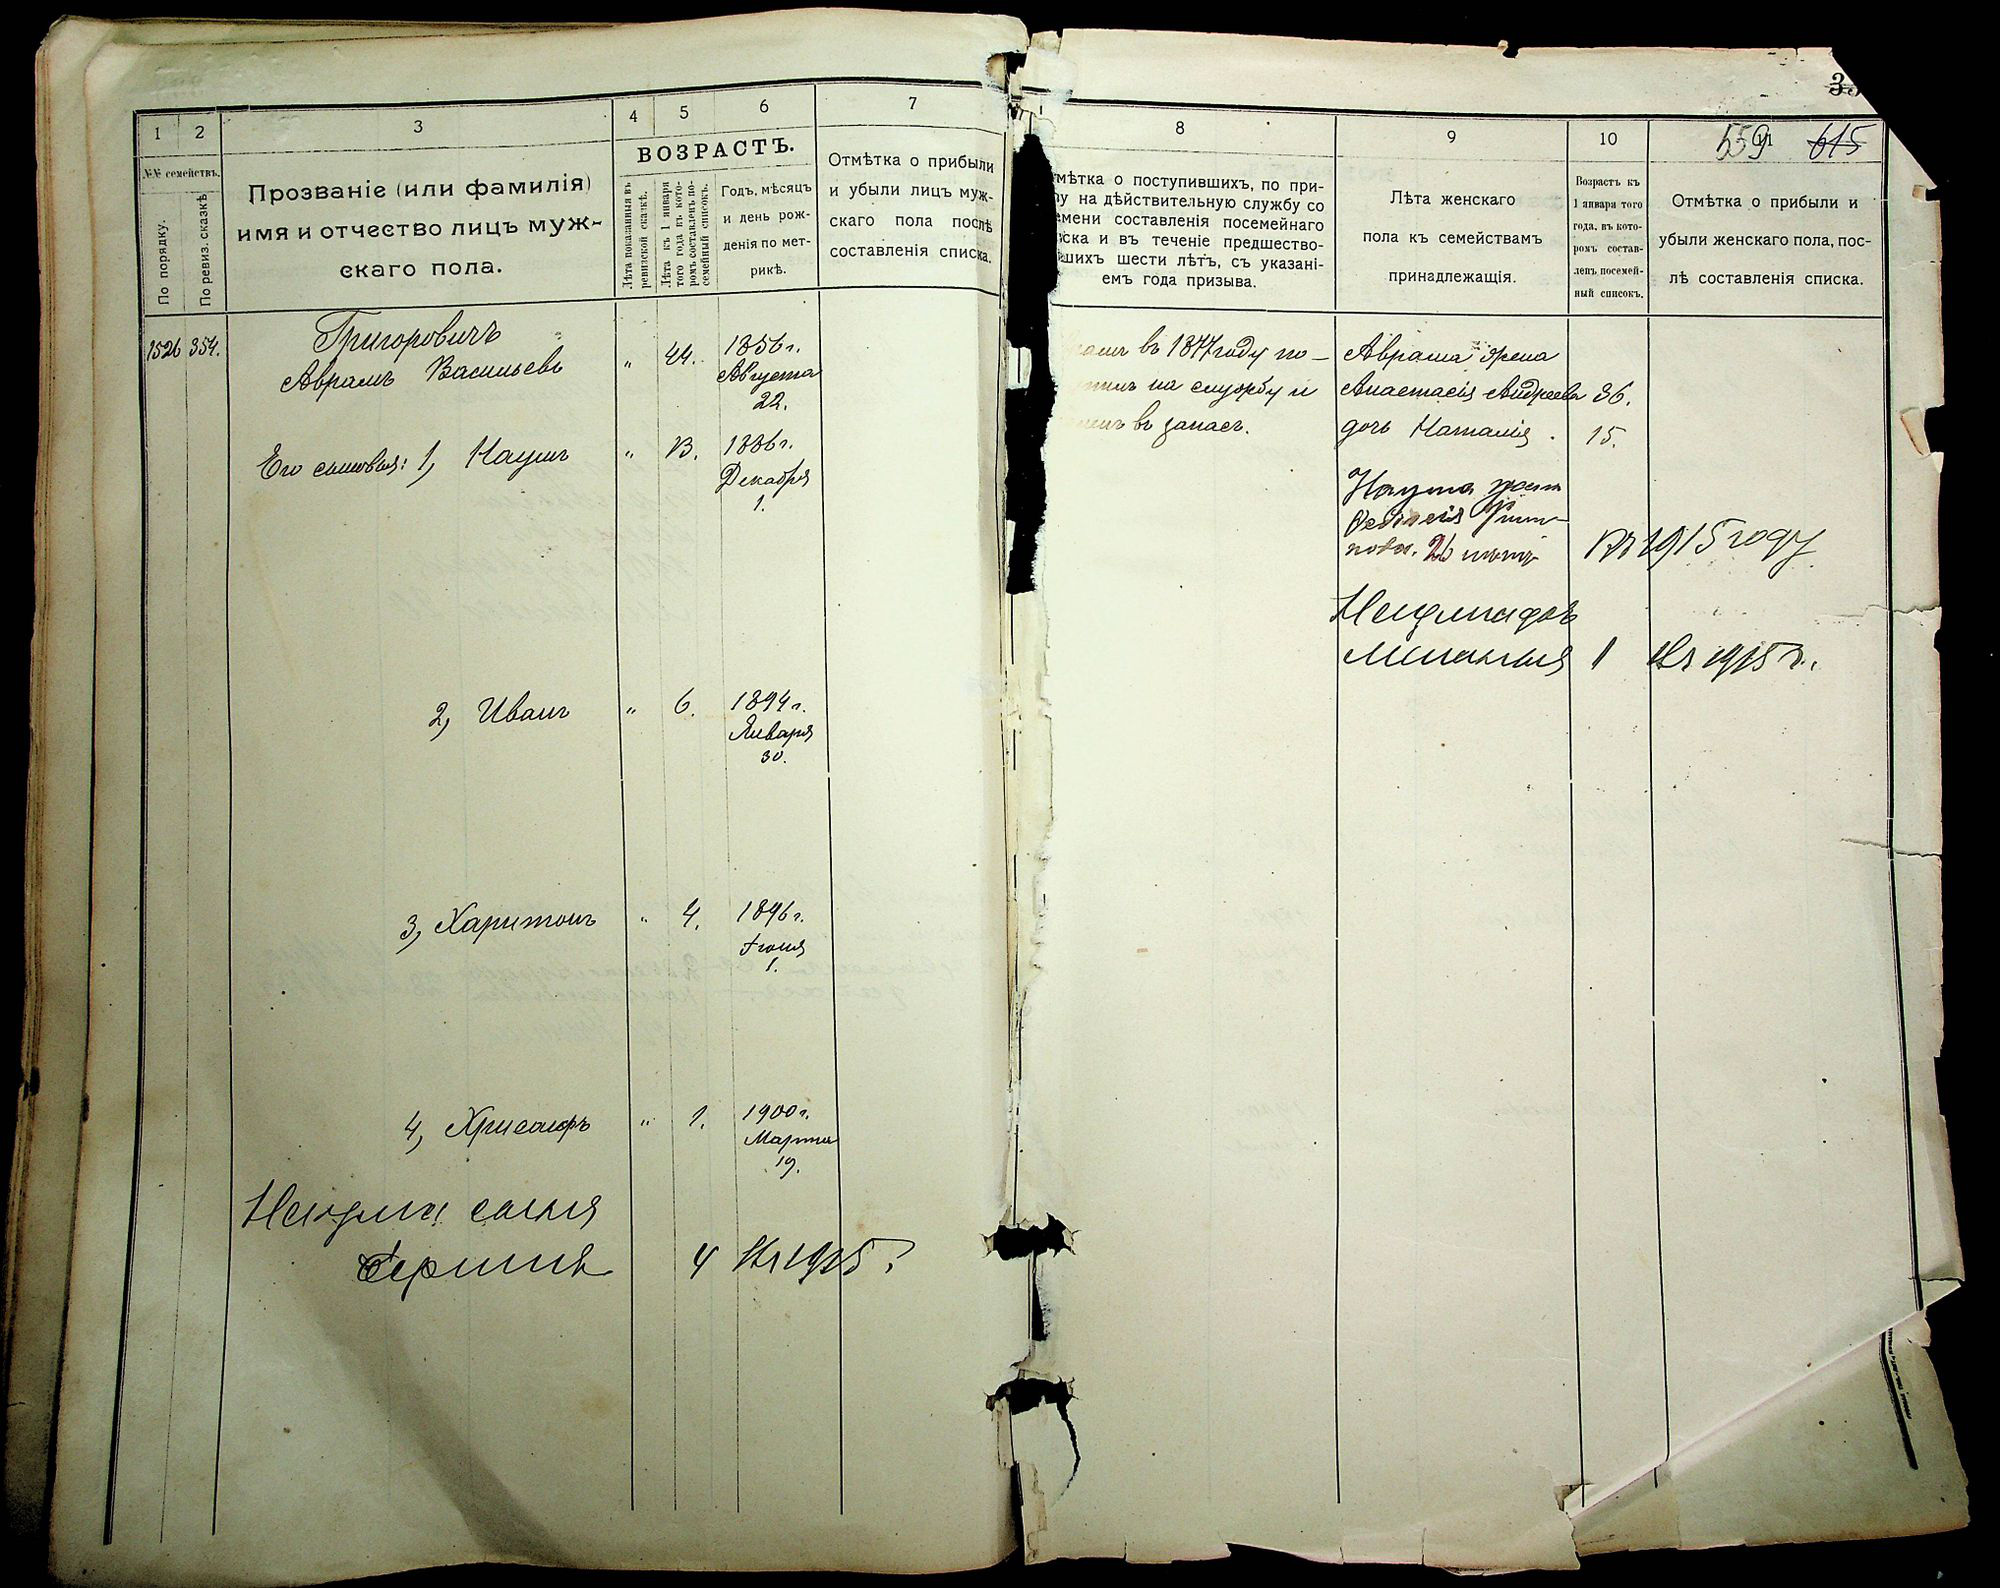 1
2
3
4
5
6
7
№№ семействъ.
По порядку.
По ревиз. сказкѣ
Прозваніе (или фамилія)
имя и отчество лицъ муж-
скаго пола.
ВОЗРАСТЪ.
Лѣта показанныя въ
ревизской сказкѣ.
Лѣта къ 1 января
того года въ кото-
ромъ составленъ по-
семейный списокъ.
Годъ, мѣсяцъ
и день рож-
денія по мет-
рикѣ.
Отмѣтка о прибыли
и убыли лицъ муж-
скаго пола послѣ
составленія списка.
1526 354.
Григоровичъ
Аврамъ Васильевъ " 44. 1856 г.
Августа
22.
Его сыновья: 1, Наумъ " 13. 1886 г.
Декабря
1.
2, Иванъ " 6. 1894 г.
Января
30.
3, Харитонъ " 4. 1896 г.
Іюня
1.
4, Хрисанфъ " 1. 1900 г.
Марта
19.
Наума сынъ
4 1915
8
9
10
11
559 615
мѣтка о поступившихъ, по при-
у на дѣйствительную службу со
емени составленія посемейнаго
ска и въ теченіе предшество-
шихъ шести лѣтъ, съ указані-
емъ года призыва.
Лѣта женскаго
пола къ семействамъ
принадлежащія.
Возрастъ къ
1 января того
года, въ кото-
ромъ состав-
ленъ посемей-
ный списокъ.
Отмѣтка о прибыли и
убыли женскаго пола, пос-
лѣ составленія списка.
рамъ въ 1877 году по-
на службу и
въ запасъ.
Аврама жена
Анастасія Андреева 36.
дочь Наталія. 15.
Наума жена
26 лѣтъ въ 1915 году
Наума дочь
1 1915 г.